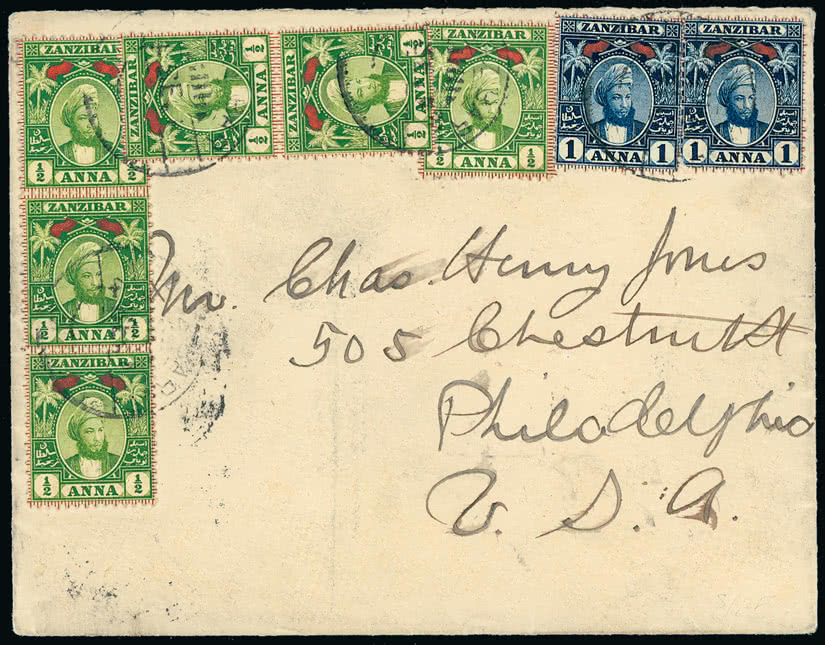 ZANZIBAR
½ ANNA ½
ZANZIBAR
½ ANNA ½
ZANZIBAR
½ ANNA ½
ZANZIBAR
½ ANNA ½
ZANZIBAR
1 ANNA 1
ZANZIBAR
1 ANNA 1
ZANZIBAR
½ ANNA ½
ZANZIBAR
½ ANNA ½
Mr. Chas. Henry Jones
505 Chestnut St
Philadelphia
U. S. A.